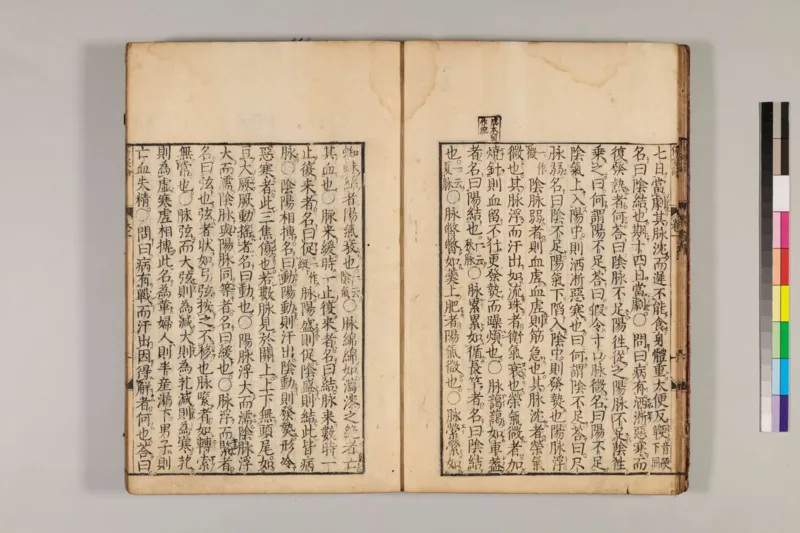 七日當劇其脉沈而遲不能食身體重大便反鞕音硬下同
名曰陰結也期十四日當劇○問曰病有洒淅惡寒而
復發熱者何荅曰陰脉不足陽往從之陽脉不足陰往
乘之曰何謂陽不足荅曰假令寸口脉微名曰陽不足
陰氣上入陽中則洒淅惡寒也曰何謂陰不足荅曰尺
脉弱名曰陰不足陽氣下陷入陰中則發熱也○陽脉浮
一作微陰脉弱者則血虛血虛則筋急也其脉沈者榮氣
微也其脉浮而汗出如流珠者衛氣衰也榮氣微者加
燒針則血留不行更發熱而躁煩也○脉藹藹如車蓋
者名曰陽結也一云秋脉○脉累累如循長竿者名曰陰結
也一云夏脉○脉瞥瞥如羹上肥者陽氣微也○脉縈縈如
蜘蛛絲者陽氣衰也一云陰氣○脉綿綿如瀉漆之絕者亡
其血也○脉來緩時一止復來者名曰結脉來數時一
止復來者名曰促一作縱脉陽盛則促陰盛則結此皆病
脉○陰陽相搏名曰動陽動則汗出陰動則發熱形冷
惡寒者此三焦傷也若數脉見於關上上下無頭尾如
豆大厥厥動搖者名曰動也○陽脉浮大而濡陰脉浮
大而濡陰脉與陽脉同等者名曰緩也○脉浮而緊者
名曰弦也弦者狀如弓弦按之不移也脉緊者如轉索
無常也○脉弦而大弦則為減大則為芤減則為寒芤
則為虛寒虛相搏此名為革婦人則半產漏下男子則
亡血失精○問曰病有戰而汗出因得解者何也荅曰